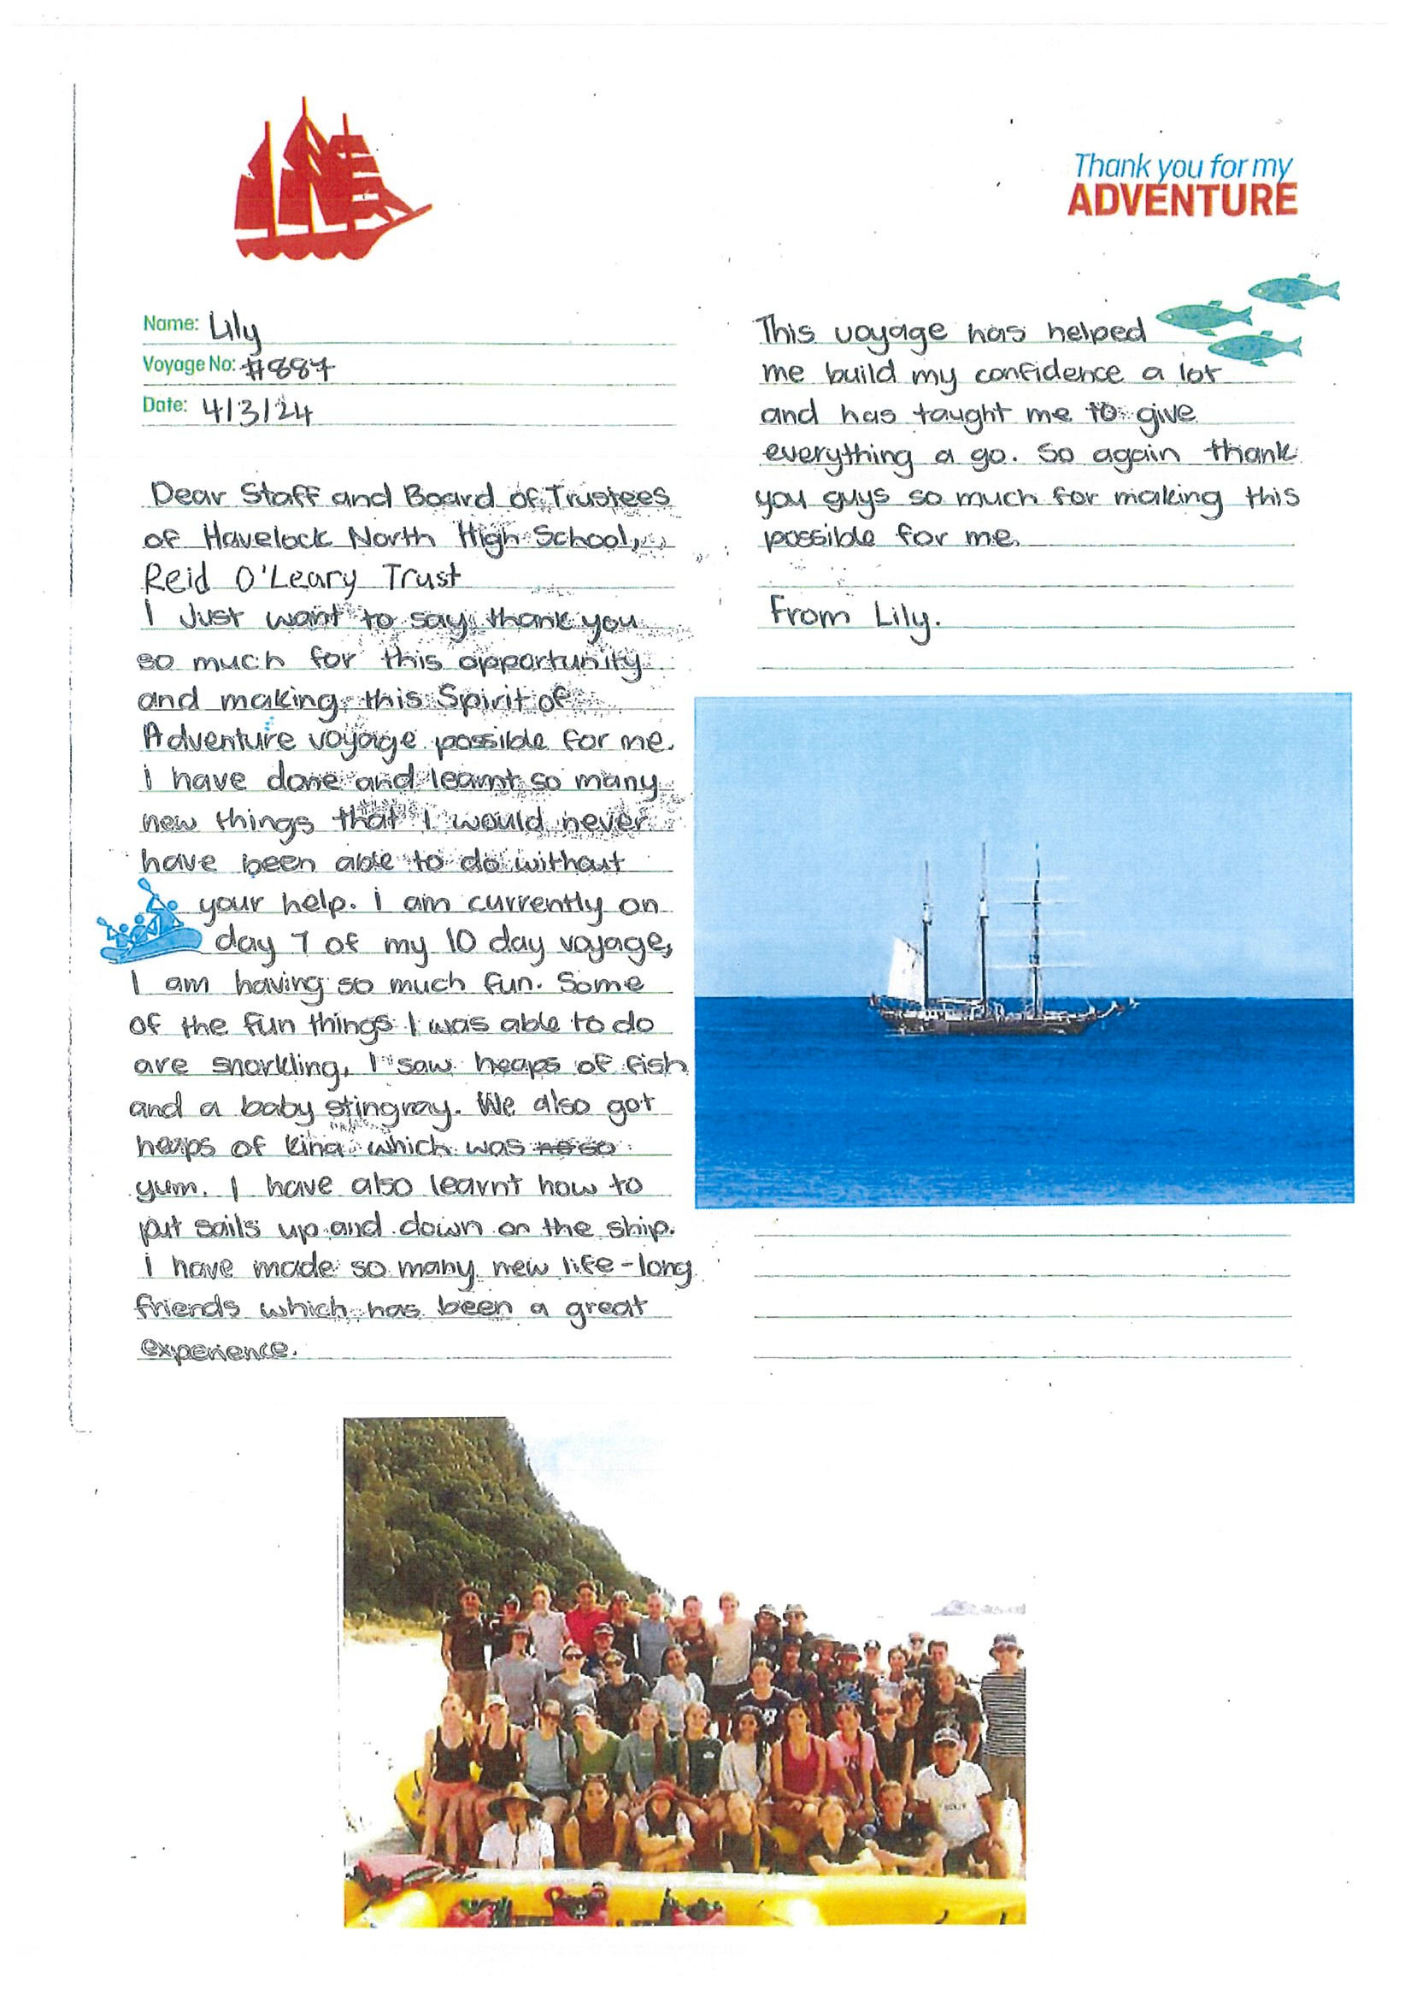 Thank you for my
ADVENTURE
Name: Lily
Voyage No: #887
Date: 4/3/24
Dear Staff and Board of Trustees
of Havelock North High School,
Reid O'Leary Trust
I Just want to say thank you
so much for this opportunity
and making this Spirit of
Adventure voyage possible for me.
I have done and learnt so many
new things that I would never
have been able to do without
your help. I am currently on
day 7 of my 10 day voyage,
I am having so much fun. Some
of the fun things I was able to do
are snorkling, I saw heaps of fish
and a baby stingray. We also got
heaps of kina which was so
yum. I have also learnt how to
put sails up and down on the ship.
I have made so many new life-long
friends which has been a great
experience.
This voyage has helped
me build my confidence a lot
and has taught me to give
everything a go. So again thank
you guys so much for making this
possible for me.
From Lily.